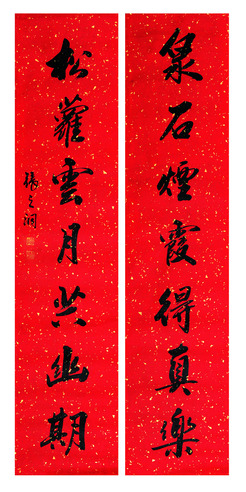 泉石煙霞得真樂
松蘿雲月共幽期